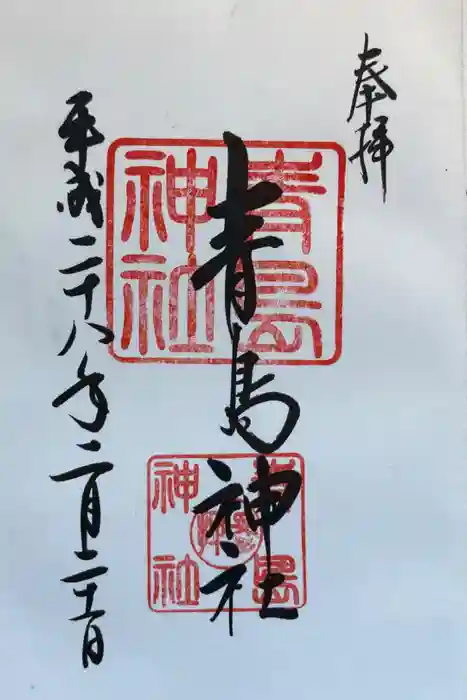 奉拝
青島神社
平成二十八年二月二十一日
青島
神社
青島
神社